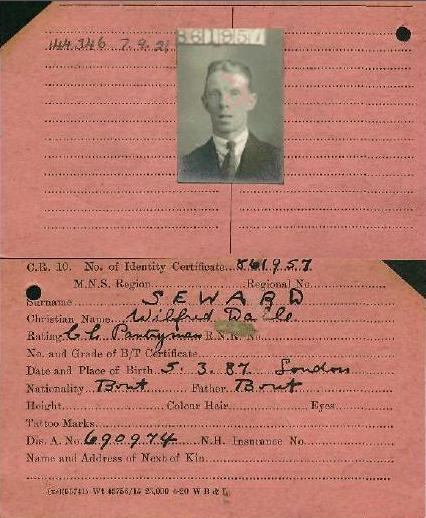 144346 7.9.21
861957
C.R. 10. No. of Identity Certificate 861957
M.N.S. Region Regional No.
Surname SEWARD
Christian Name Wilfred
Rating Pantryman R.N.R. No.
No. and Grade of B/T Certificate
Date and Place of Birth 5.3.87 London
Nationality Brit Father Brit
Height Colour Hair Eyes
Tattoo Marks
Dis. A. No. 690974 N.H. Insurance No.
Name and Address of Next of Kin
Wt 45756/14 25,000 4-20 W B & L